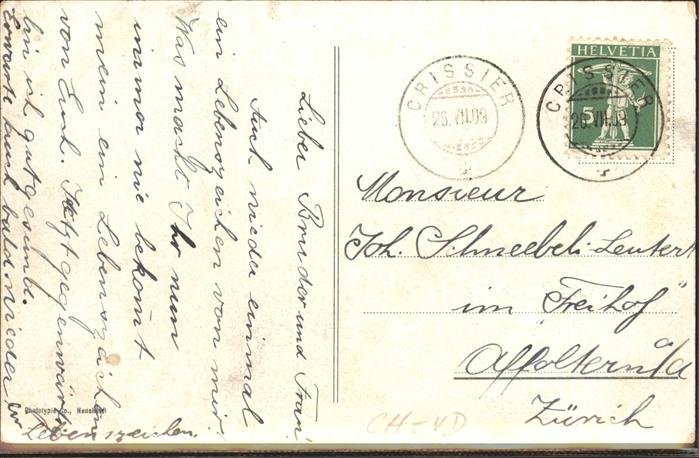 HELVETIA
5
CRISSIER
26.VII.09
CRISSIER
26.VII.09
Monsieur
Joh. Schneebeli-Leutert
im "Freihof"
Affoltern a/A
Zürich
Lieber Bruder und Frau
Auch wieder einmal
ein Lebenszeichen von mir.
Was macht Ihr nun
immer nie bekomt
mein ein Lebenszeichen
von Euch. Jetzt gegenwärtig
bin ich gut gesund.
Erwarte bald wieder ein
Lebenszeichen.
Phototypie Co., Neuchâtel
CH-VD